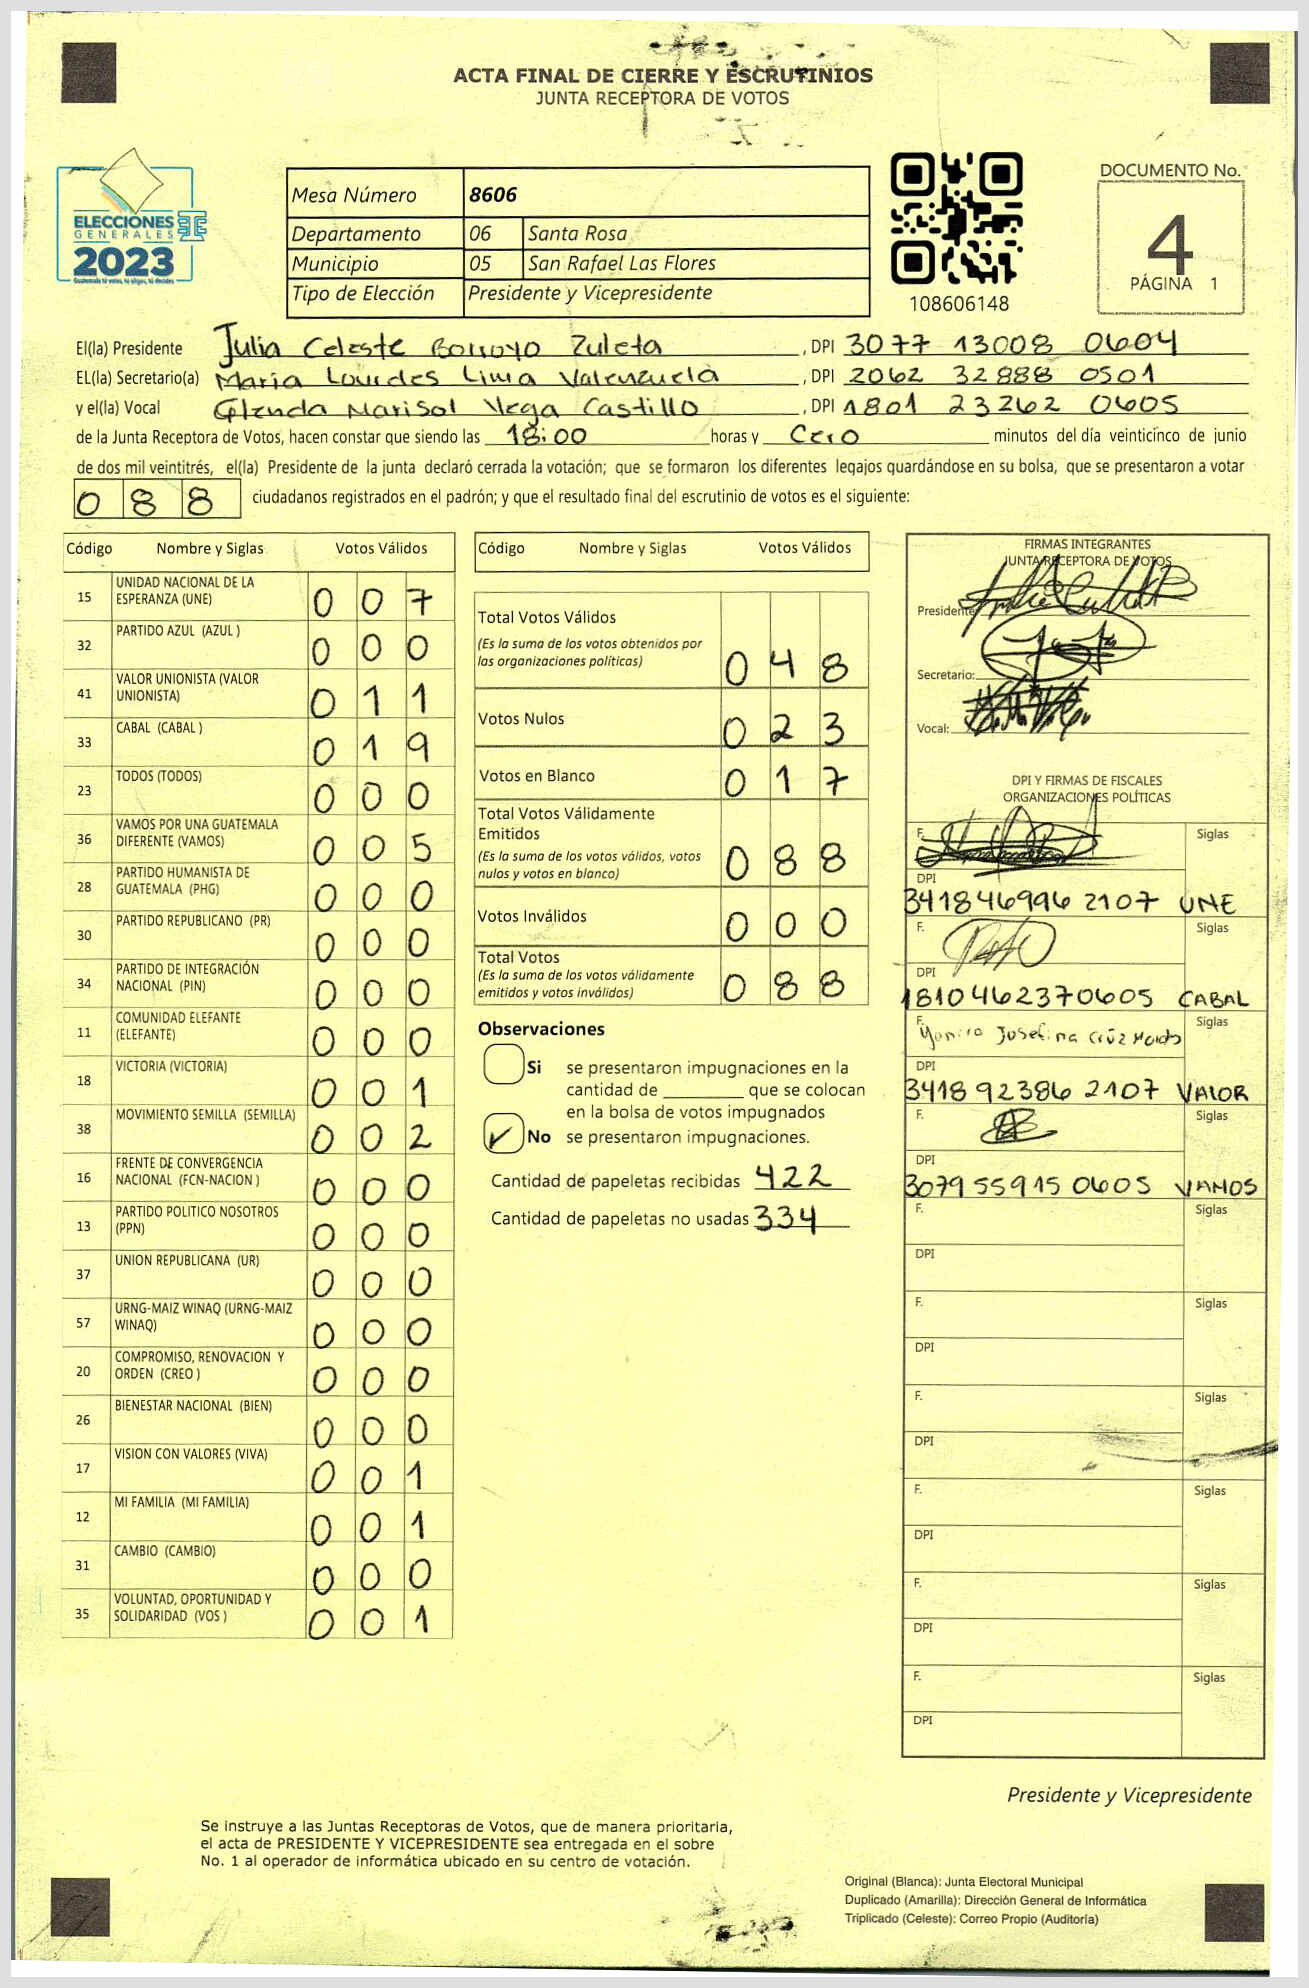 ACTA FINAL DE CIERRE Y ESCRUTINIOS
JUNTA RECEPTORA DE VOTOS
ELECCIONES
GENERALES
2023
Guatemala tú votas, tú eliges, tú decides
Mesa Número 8606
Departamento 06 Santa Rosa
Municipio 05 San Rafael Las Flores
Tipo de Elección Presidente y Vicepresidente
108606148
DOCUMENTO No.
4
PÁGINA 1
El(la) Presidente Julia Celeste Borrayo Zuleta, DPI 3077 13008 0604
EL(la) Secretario(a) Maria Lourdes Lima Valenzuela, DPI 2062 32888 0501
y el(la) Vocal Glenda Marisol Vega Castillo, DPI 1801 23262 0605
de la Junta Receptora de Votos, hacen constar que siendo las 18:00 horas y Cero minutos del día veinticinco de junio
de dos mil veintitrés, el(la) Presidente de la junta declaró cerrada la votación; que se formaron los diferentes legajos guardándose en su bolsa, que se presentaron a votar
088 ciudadanos registrados en el padrón; y que el resultado final del escrutinio de votos es el siguiente:
Código Nombre y Siglas Votos Válidos
15 UNIDAD NACIONAL DE LA ESPERANZA (UNE) 0 0 7
32 PARTIDO AZUL (AZUL ) 0 0 0
41 VALOR UNIONISTA (VALOR UNIONISTA) 0 1 1
33 CABAL (CABAL ) 0 1 9
23 TODOS (TODOS) 0 0 0
36 VAMOS POR UNA GUATEMALA DIFERENTE (VAMOS) 0 0 5
28 PARTIDO HUMANISTA DE GUATEMALA (PHG) 0 0 0
30 PARTIDO REPUBLICANO (PR) 0 0 0
34 PARTIDO DE INTEGRACIÓN NACIONAL (PIN) 0 0 0
11 COMUNIDAD ELEFANTE (ELEFANTE) 0 0 0
18 VICTORIA (VICTORIA) 0 0 1
38 MOVIMIENTO SEMILLA (SEMILLA) 0 0 2
16 FRENTE DE CONVERGENCIA NACIONAL (FCN-NACION ) 0 0 0
13 PARTIDO POLITICO NOSOTROS (PPN) 0 0 0
37 UNION REPUBLICANA (UR) 0 0 0
57 URNG-MAIZ WINAQ (URNG-MAIZ WINAQ) 0 0 0
20 COMPROMISO, RENOVACION Y ORDEN (CREO ) 0 0 0
26 BIENESTAR NACIONAL (BIEN) 0 0 0
17 VISION CON VALORES (VIVA) 0 0 1
12 MI FAMILIA (MI FAMILIA) 0 0 1
31 CAMBIO (CAMBIO) 0 0 0
35 VOLUNTAD, OPORTUNIDAD Y SOLIDARIDAD (VOS ) 0 0 1
Código Nombre y Siglas Votos Válidos
Total Votos Válidos
(Es la suma de los votos obtenidos por
las organizaciones políticas) 0 4 8
Votos Nulos 0 2 3
Votos en Blanco 0 1 7
Total Votos Válidamente
Emitidos
(Es la suma de los votos válidos, votos
nulos y votos en blanco) 0 8 8
Votos Inválidos 0 0 0
Total Votos
(Es la suma de los votos válidamente
emitidos y votos inválidos) 0 8 8
Observaciones
Si se presentaron impugnaciones en la
cantidad de ________ que se colocan
en la bolsa de votos impugnados
No se presentaron impugnaciones.
Cantidad de papeletas recibidas 422
Cantidad de papeletas no usadas 334
FIRMAS INTEGRANTES
JUNTA RECEPTORA DE VOTOS
Presidente:
Secretario:
Vocal:
DPI Y FIRMAS DE FISCALES
ORGANIZACIONES POLÍTICAS
F. Siglas
DPI
341846996 2107 UNE
F. Siglas
DPI
1810462370605 CABAL
F. Josefina Siglas
DPI
3418 92386 2107 VALOR
F. Siglas
DPI
3079 55915 0605 VAMOS
F. Siglas
DPI
F. Siglas
DPI
F. Siglas
DPI
F. Siglas
DPI
F. Siglas
DPI
F. Siglas
DPI
Presidente y Vicepresidente
Se instruye a las Juntas Receptoras de Votos, que de manera prioritaria,
el acta de PRESIDENTE Y VICEPRESIDENTE sea entregada en el sobre
No. 1 al operador de informática ubicado en su centro de votación.
Original (Blanca): Junta Electoral Municipal
Duplicado (Amarilla): Dirección General de Informática
Triplicado (Celeste): Correo Propio (Auditoría)